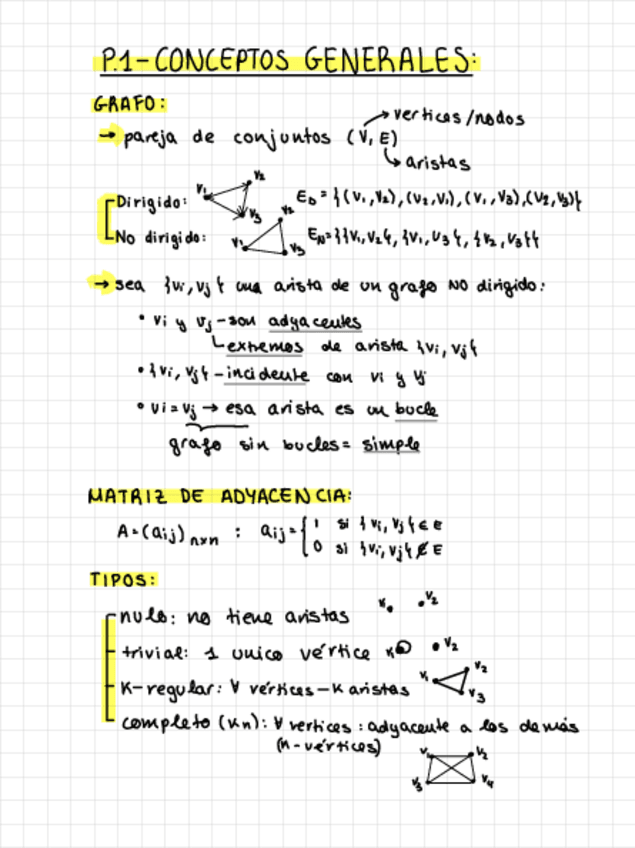 P.1-CONCEPTOS GENERALES:
GRAFO:
→ vertices/nodos
→ pareja de conjuntos (V, E)
→ aristas
Dirigido: V1 V2 V3 ED = {(V1,V2), (V2,V1), (V1,V3), (V2,V3)}
No dirigido: V1 V2 V3 EN={{V1,V2}, {V1,V3}, {V2,V3}}
→ sea {vi, vj} una arista de un grafo NO dirigido:
• vi y vj - son adyacentes
extremos de arista {vi, vj}
• {vi, vj} - incidente con vi y vj
• vi = vj → esa arista es un bucle
grafo sin bucles = simple
MATRIZ DE ADYACENCIA:
A = (aij) nxn : aij = { 1 si {vi, vj} ∈ E
0 si {vi, vj} ∉ E
TIPOS:
nulo: no tiene aristas V1 V2
trivial: 1 unico vértice V1 V2
K-regular: ∀ vértices - K aristas V1 V2 V3
completo (Kn): ∀ vertices : adyacente a los demás
(n-vértices)
V1 V2
V3 V4